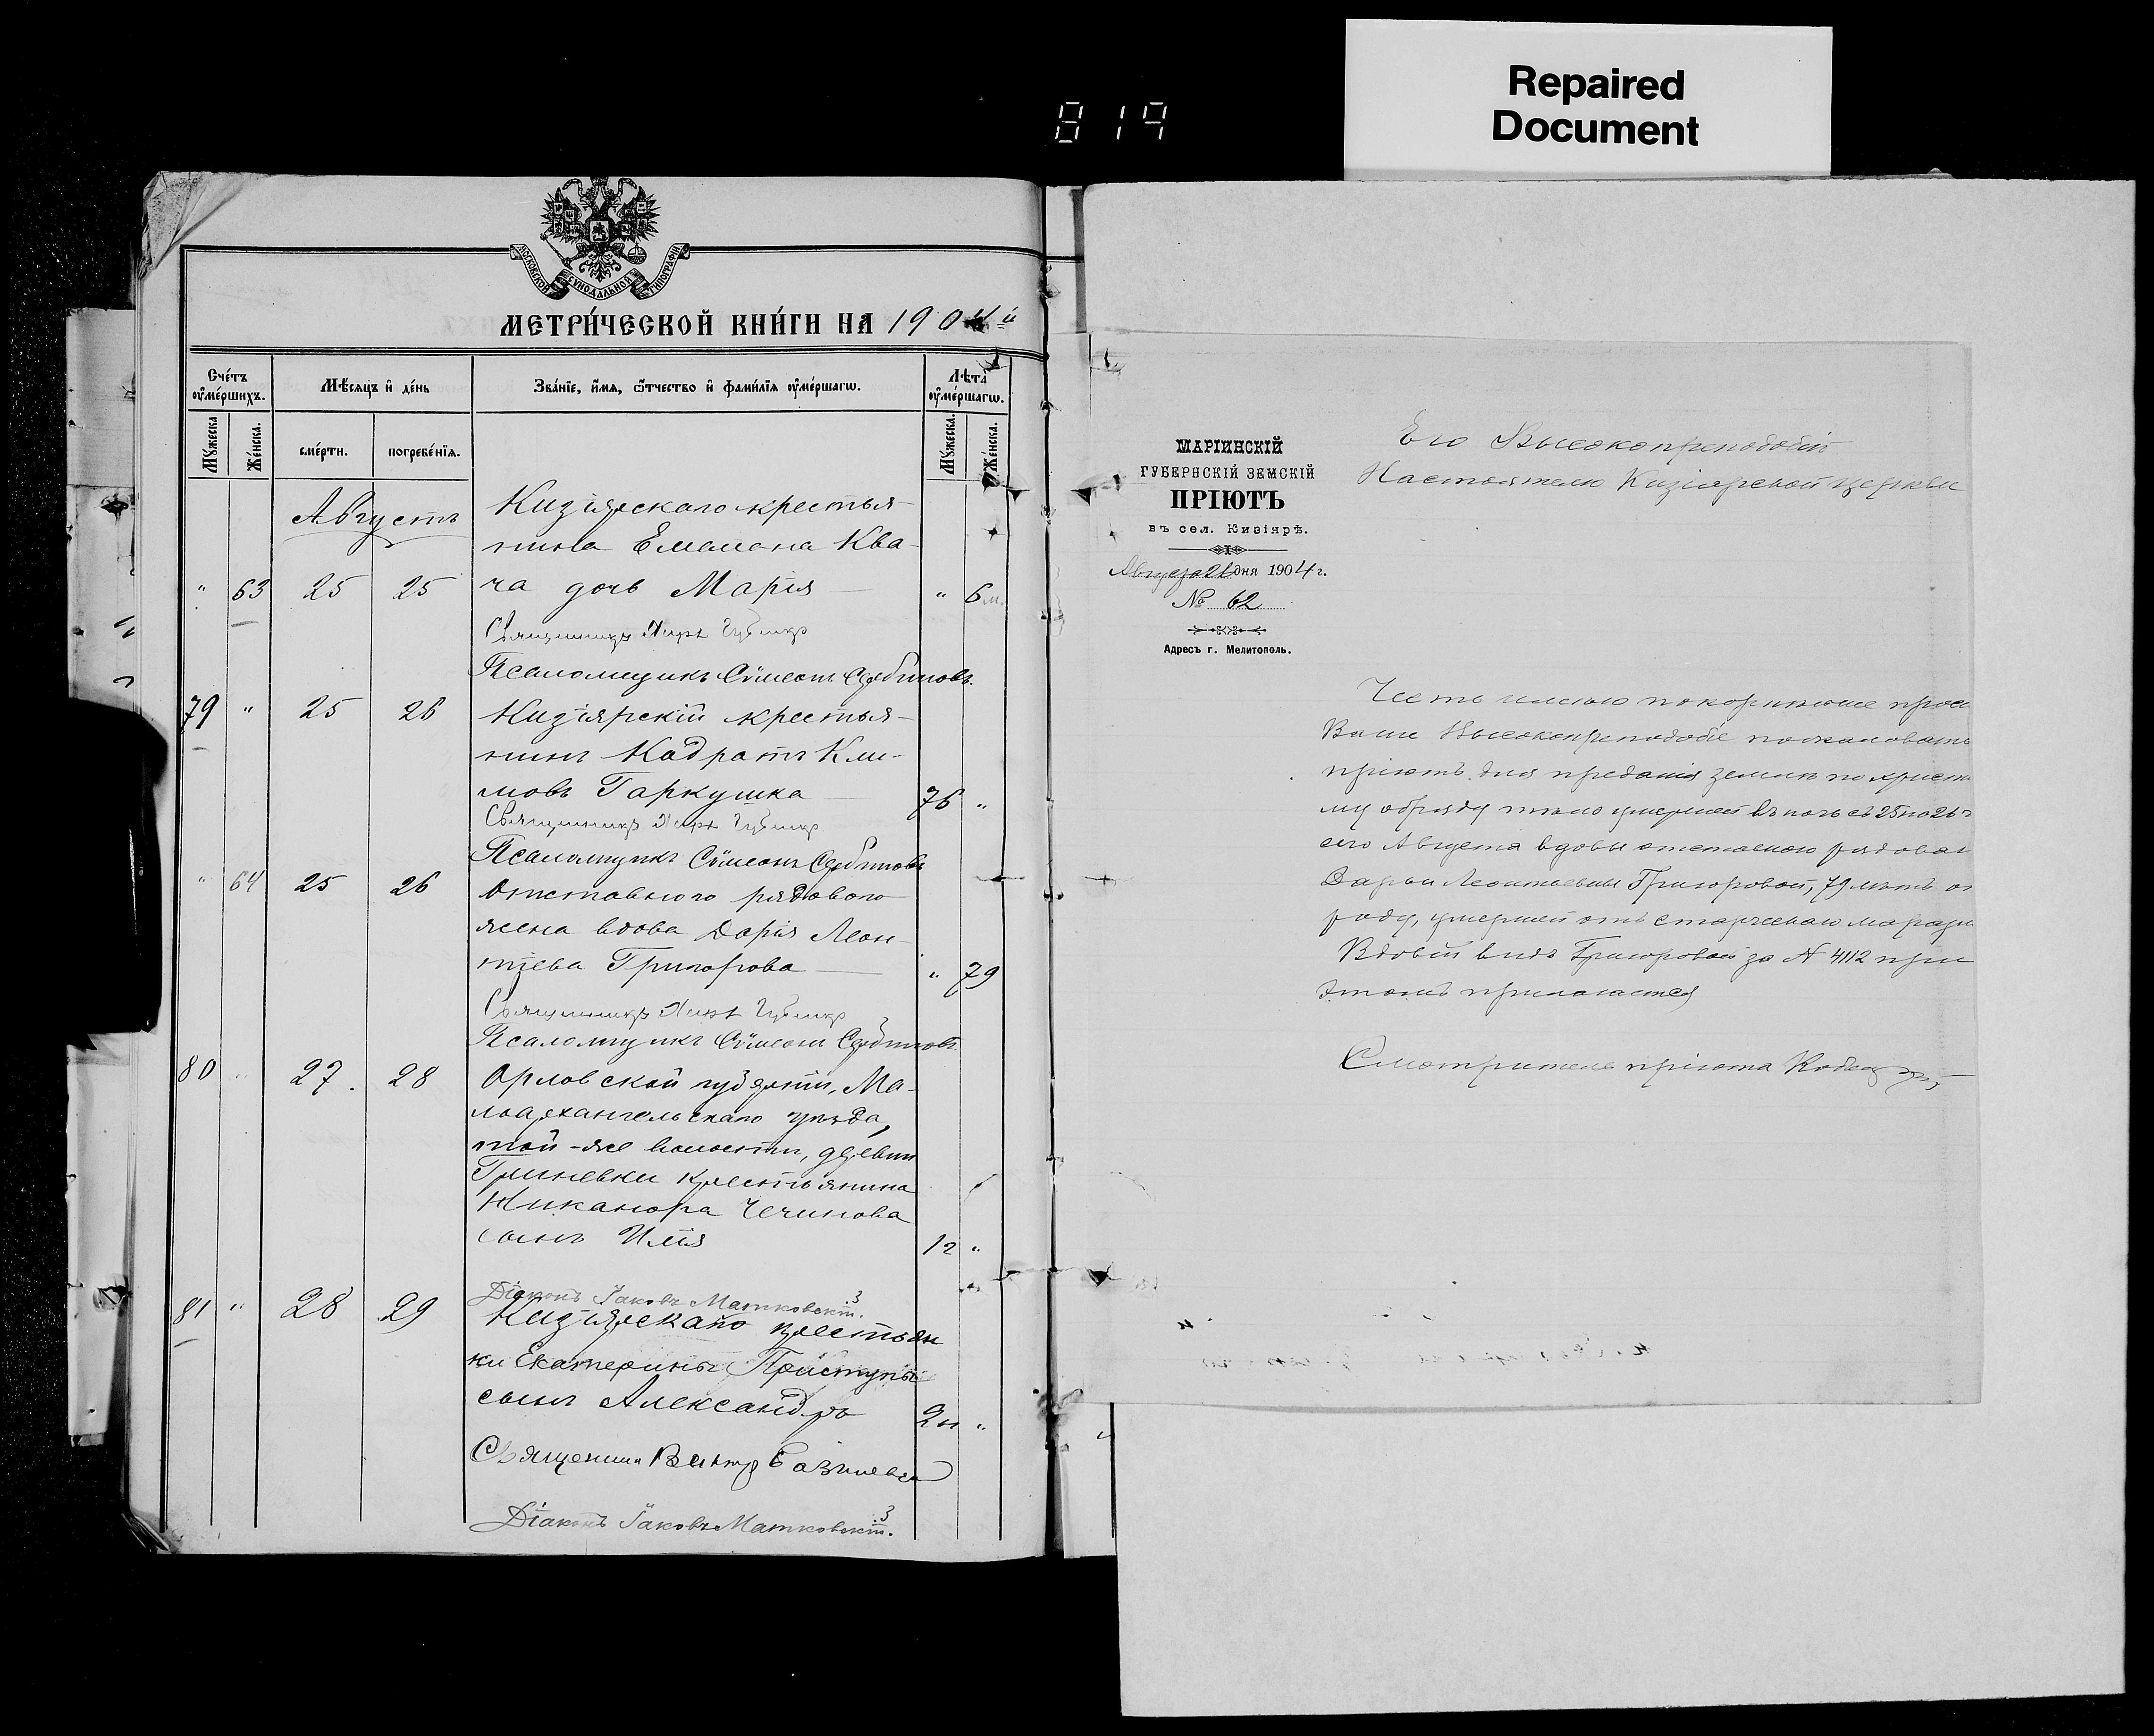 Repaired
Document
819
МОСКОВСКОЙ СѴНОДАЛЬНОЙ ТИПОГРАФІИ
МЕТРИ́ЧЕСКОЙ КНИ́ГИ НА 1904й
Сче́тъ ᲂу҆ме́ршихъ.
Мѣ́сяцъ и҆ де́нь
Зва́нїе, и҆́мя, ѻ҆́тчество и҆ фами́лїя ᲂу҆ме́ршагѡ.
Лѣ́та ᲂу҆ме́ршагѡ.
Мꙋ́жеска
Же́нска.
сме́рти.
погребе́нїя.
Мꙋ́жеска.
Же́нска.
Августъ
Кизіярскаго крестья-
нина Емельяна Ква-
" 63 25 25 ча дочь Марія " 6 м.
Священникъ
Псаломщикъ Сѵмеонъ
79 " 25 26 Кизіярскій крестья-
нинъ Кодратъ Кли-
мовъ Гаркушка 76 "
Священникъ
Псаломщикъ Сѵмеонъ
" 64 25 26 Отставного рядового
жена вдова Дарія Леон-
тіева Григорова " 79
Священникъ
Псаломщикъ Сѵмеонъ
80 " 27. 28 Орловской губерніи, Ма-
лоархангельскаго уѣзда,
той-же волости, деревни
Гриневки крестьянина
Никанора Чечинова
сынъ Илія 12 "
Діаконъ Іаковъ Матковскій.
81 " 28 29 Кизіярскаго крестьян
ки Екатерины Приступы
сынъ Александръ 2 н "
Священникъ Викторъ
Діаконъ Іаковъ Матковскій.
МАРІИНСКІЙ
ГУБЕРНСКІЙ ЗЕМСКІЙ
ПРІЮТЪ
въ сел. Кизіярѣ.
Августа 26 дня 1904 г.
№ 62
Адресъ г. Мелитополь.
Его Высокопреподобію
Настоятелю Кизіярской церкви
Честь имѣю покорнѣйше прос
Ваше Высокопреподобіе пожаловать
пріютъ для преданія землѣ по христ
му обряду тѣло умершей въ ночь съ 25 по 26
сего Августа вдовы отставного рядового
Дарьи Леонтьевны Григоровой, 79 лѣтъ от
роду, умершей отъ старческаго маразм
Вдовій видъ Григоровой за № 4112 при
этомъ прилагается
Смотритель пріюта